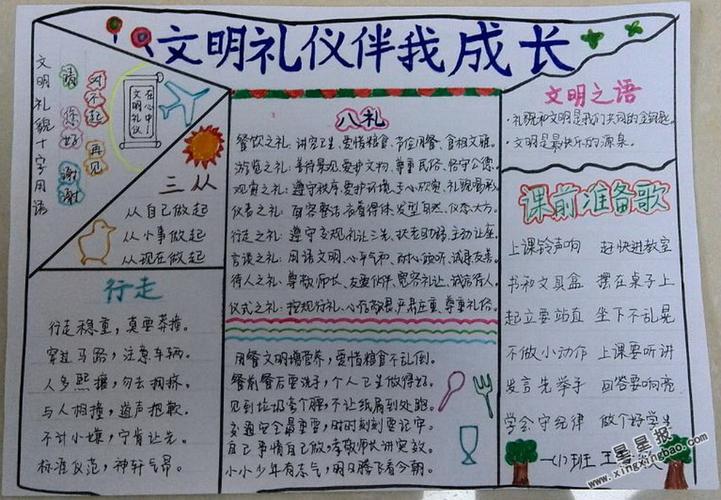 文明礼仪伴我成长
文明礼貌十字用语
请
您好
谢谢
对不起
再见
文明礼仪
在心中!
三从
从自己做起
从小事做起
从现在做起
行走
行走稳重,莫要莽撞。
穿过马路,注意车辆。
人多熙攘,勿去拥挤。
与人相撞,道声抱歉。
不计小嫌,宁肯让先。
标准仪范,神轩气昂。
八礼
餐饮之礼:讲究卫生、爱惜粮食、节俭用餐、食相文雅。
游览之礼:善待景观、爱护文物、尊重民俗、恪守公德。
观赏之礼:遵守秩序、爱护环境、专心欣赏、礼貌喝彩。
仪表之礼:面容整洁、衣着得体、发型自然、仪态大方。
行走之礼:遵守交规、礼让三先、扶老助弱、主动让座。
言谈之礼:用语文明、心平气和、耐心倾听、诚恳友善。
待人之礼:尊敬师长、友爱伙伴、宽容礼让、诚信待人。
仪式之礼:按规行礼、心存敬畏、严肃庄重、尊重礼俗。
用餐文明增营养,爱惜粮食不乱倒。
餐前餐后要洗手,个人卫生做得好。
见到垃圾弯个腰,不让纸屑到处跑。
交通安全最重要,时时刻刻要记牢。
自己事情自己做,孝敬师长讲实效。
小小少年有志气,明日腾飞看今朝。
文明之语
·礼貌和文明是我们共同的金钥匙。
·文明是最快乐的源泉。
课前准备歌
上课铃声响 赶快进教室
书和文具盒 摆在桌子上
起立要站直 坐下不乱晃
不做小动作 上课要听讲
发言先举手 回答要响亮
学会守纪律 做个好学生
一(1)班 王
星星报
www.xingxingbao.com